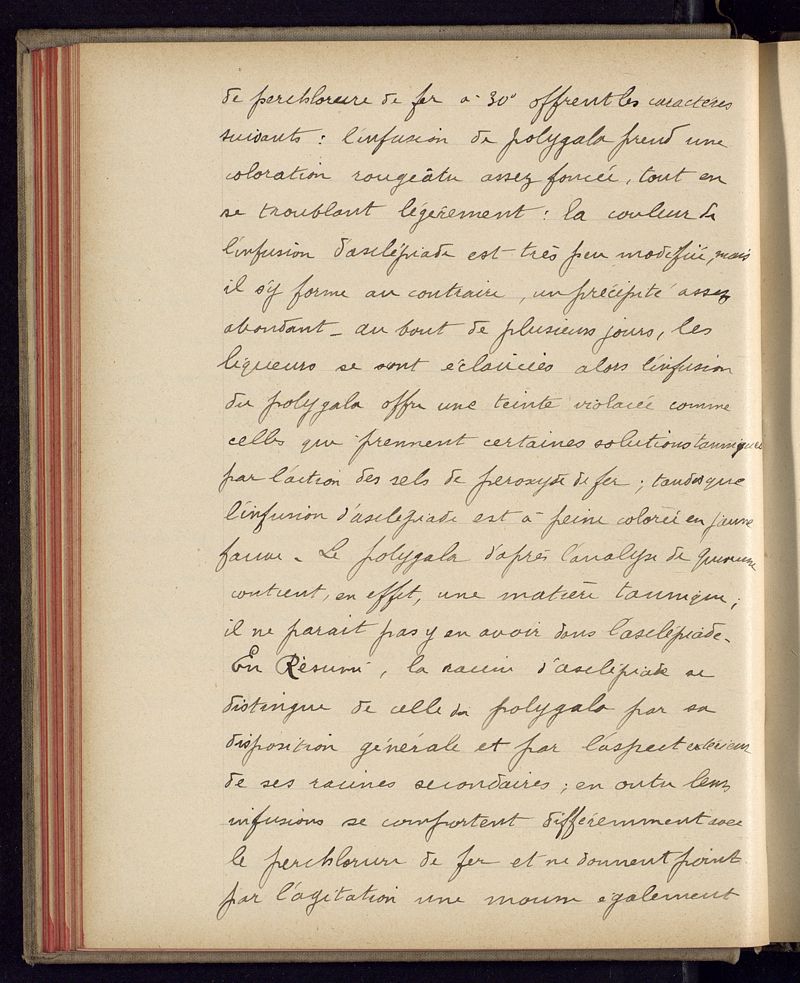 de perchlorure de fer à 30° offrent les caractères
suivants : l'infusion de polygala prend une
coloration rougeâtre assez foncée, tout en
se troublant légèrement : la couleur de
l'infusion d'asclépiade est très peu modifiée, mais
il s'y forme au contraire, un précipité assez
abondant _ au bout de plusieurs jours, les
liqueurs se sont éclaircies alors l'infusion
du polygala offre une teinte violacée comme
celles que prennent certaines solutions tanniques
par l'action des sels de peroxyde de fer ; tandis que
l'infusion d'asclépiade est à peine colorée en jaune
fauve _ Le polygala d'après l'analyse de
contient, en effet, une matière tannique ;
il ne parait pas y en avoir dans l'asclépiade _
En Résumé, la racine d'asclépiade se
distingue de celle du polygala par sa
disposition générale et par l'aspect extérieur
de ses racines secondaires ; en outre leurs
infusions se comportent différemment avec
le perchlorure de fer et ne donnent point
par l'agitation une mousse également